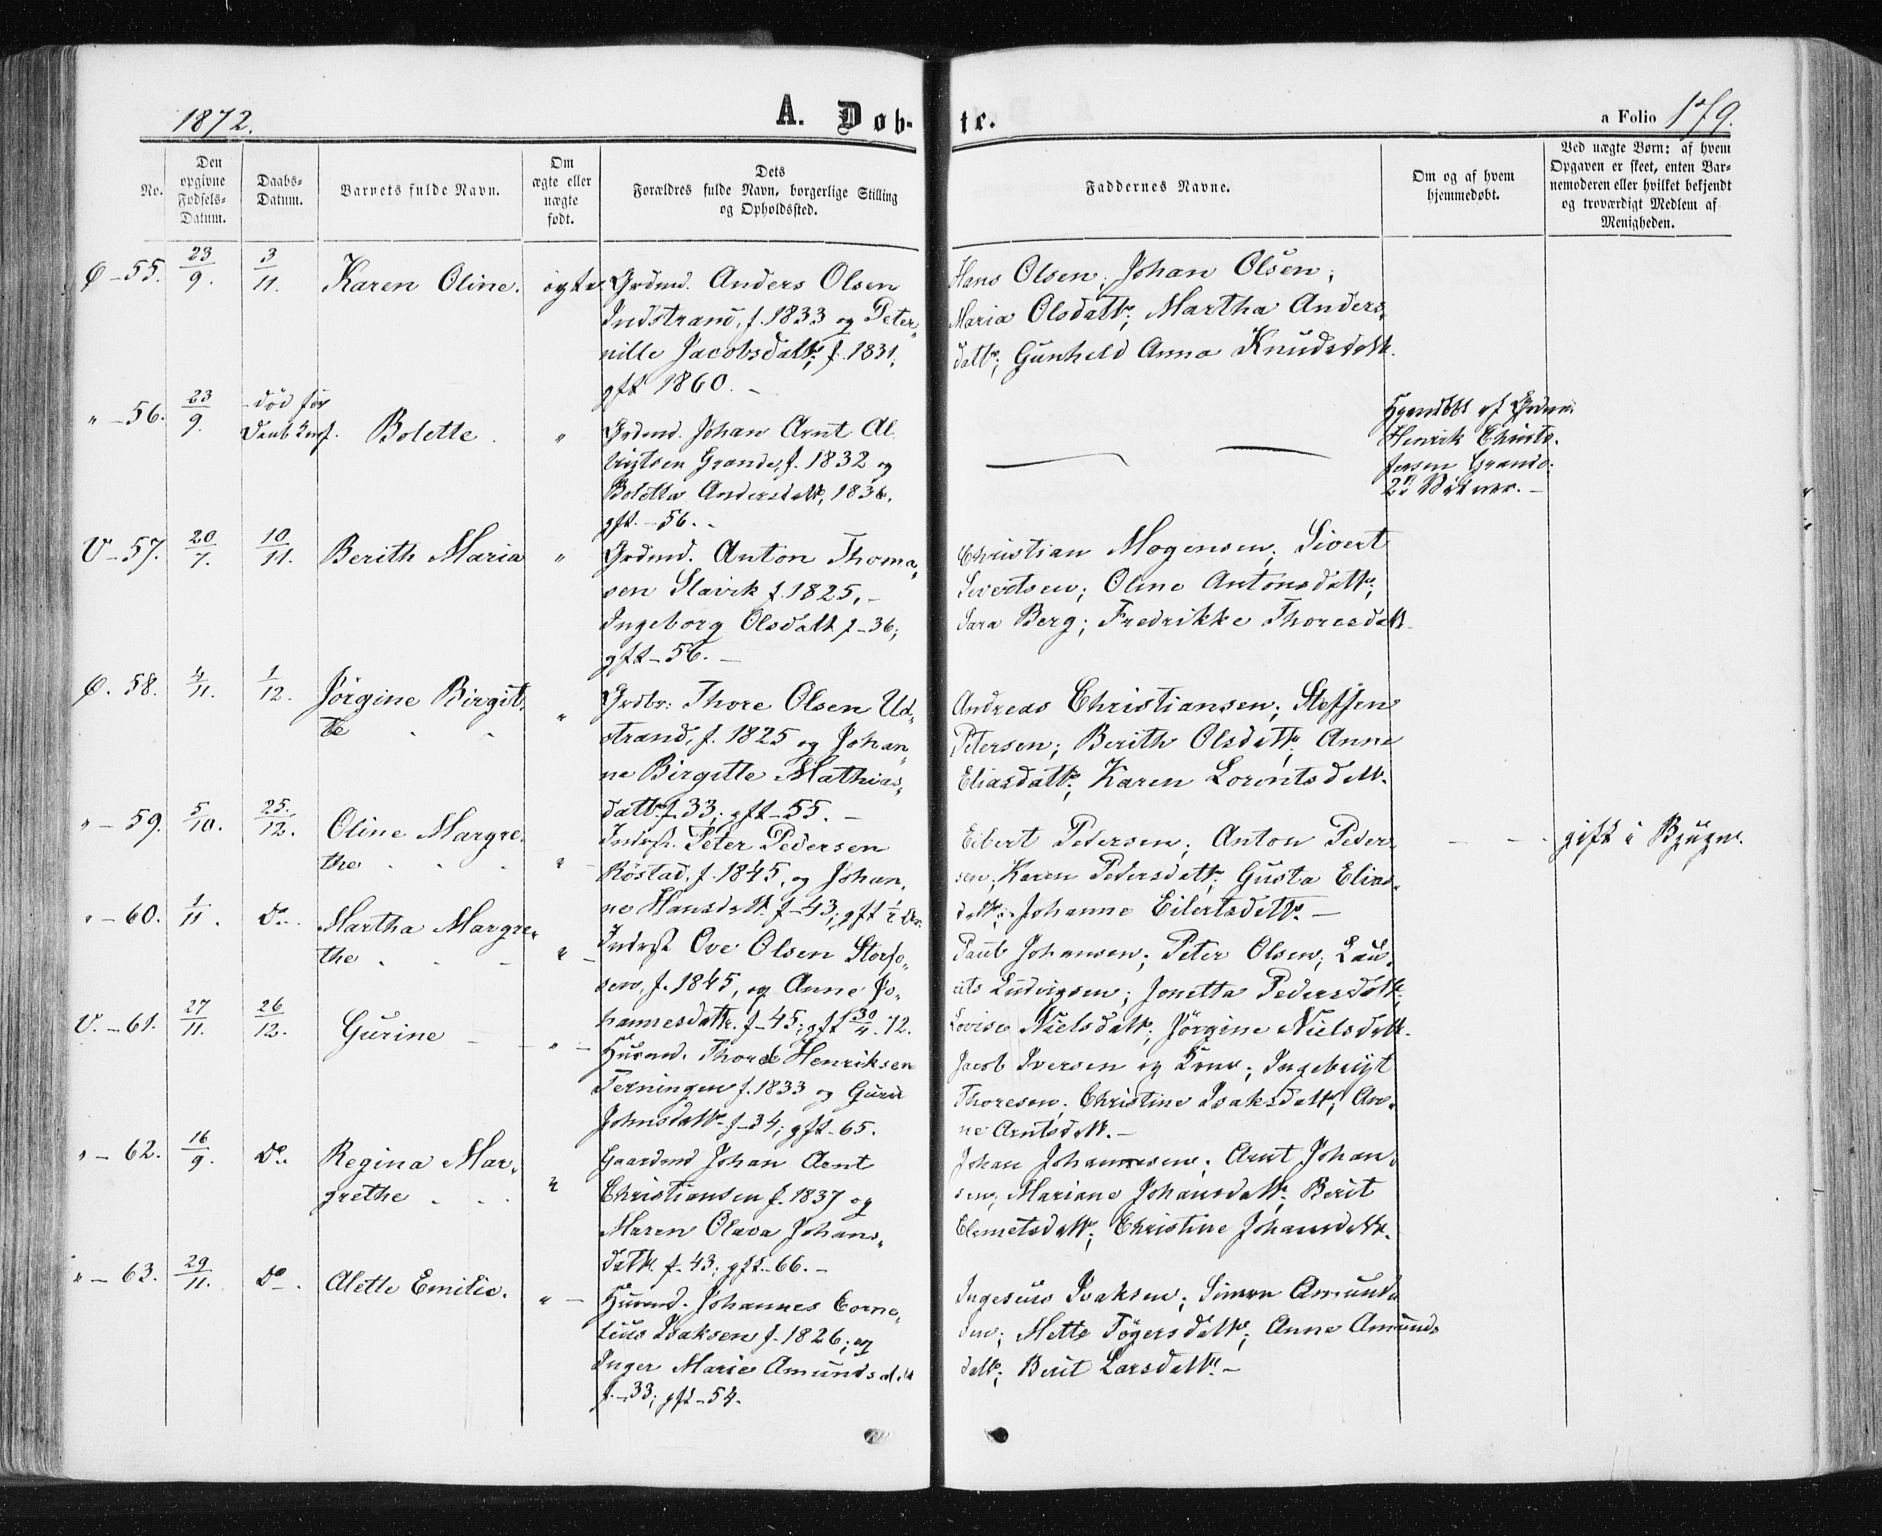 1872.
A. Døb-
te.
a Folio 179.
No.
Den opgivne Fødsels-Datum.
Daabs-Datum.
Barnets fulde Navn.
Om ægte eller uægte født.
Dets Forældres fulde Navn, borgerlige Stilling og Opholdssted.
Faddernes Navne.
Om og af hvem hjemmedøbt.
Ved uægte Børn: af hvem Opgaven er skeet, enten Barnemoderen eller hvilket bekjendt og troværdigt Medlem af Menigheden.
Ø - 55. 23/9. 3/11. Karen Oline. ægte
Grdmd. Anders Olsen
Indstrand, f. 1833 og Peter-
nille Jacobsdatt. f. 1831.
gft 1860. -
Hans Olsen; Johan Olsen;
Maria Olsdatt.; Martha Anders-
datt.; Gunhild Anna Knudsdatt.
" - 56. 23/9. død før Bolette. "
Grdmd. Johan Arnt Al-
brigtsen Grande, f. 1832 og
Boletta Andersdatt. 1836.
gft. - 56. -
Henrik Christo-
fersen Grande.
V - 57. 20/7. 10/11. Berith Maria "
Grdmd. Anton Thoma-
sen Slavik f. 1825, -
Ingeborg Olsdatt f - 36;
gft - 56. -
Christian Mogensen; Sivert
Sivertsen; Oline Antonsdatt.;
Sara Berg; Fredrikke Thoresdatt
Ø. 58. 4/11. 1/12. Jørgine Birgit-
te "
Grdbr: Thore Olsen Ud-
strand, f. 1825 og Johan-
ne Birgitte Mathias-
datt. f. 33; gft - 55. -
Andreas Christiansen; Steffen
Petersen; Berith Olsdatt. Anne
Eliasdatt.; Karen Lorentsdatt.
" - 59. 5/10. 25/12. Oline Margre-
the "
Inderst. Peter Pedersen
Røstad, f. 1845, og Johan-
ne Hansdatt. f - 43; gft
Eibert Petersen; Anton Peder-
sen; Karen Pedersdatt.; Gusta Elias-
datt.; Johanne Eilertsdatt. -
gift i Bjugn.
" - 60. 1/11. Do. Martha Margre-
the "
Inderst Ove Olsen Storfo-
sen, f. 1845, og Anne Jo-
hannesdatt. f - 45; gft 30/4. 72.
Paul Johansen; Peter Olsen; Lau-
rits Ludvigsen; Jonetta Pedersdatt.
Lovise Nielsdatt.; Jørgine Nielsdatt.
V. - 61. 27/11. 26/12. Gurine "
Husmd. Thore Henriksen
Terningen f. 1833 og Guru
Johnsdatt. f - 34; gft - 65.
Jacob Iversen og Kone; Ingebrigt
Thoresen; Christine Isaksdatt; An-
ne Arntsdatt. -
" - 62. 16/9. Do. Regina Mar-
grethe "
Gaardmd Johan Arnt
Christiansen f. 1837 og
Maren Olava Johans-
datt. f - 43; gft - 66. -
Johan Johannesen; Arnt Johan-
sen; Mariane Johansdatt. Berit
Elemetsdatt.; Christine Johansdatt.
" - 63. 29/11. Do. Alette Emilie. "
Husmd. Johannes Corne-
lius Isaksen f. 1826; og
Inger Marie Amundsdatt
f. - 33; gft - 54.
Isaksen; Simon Amund-
sen; Mette Tøgersdatt.; Anne Amunds
datt.; Berit Larsdatt. -